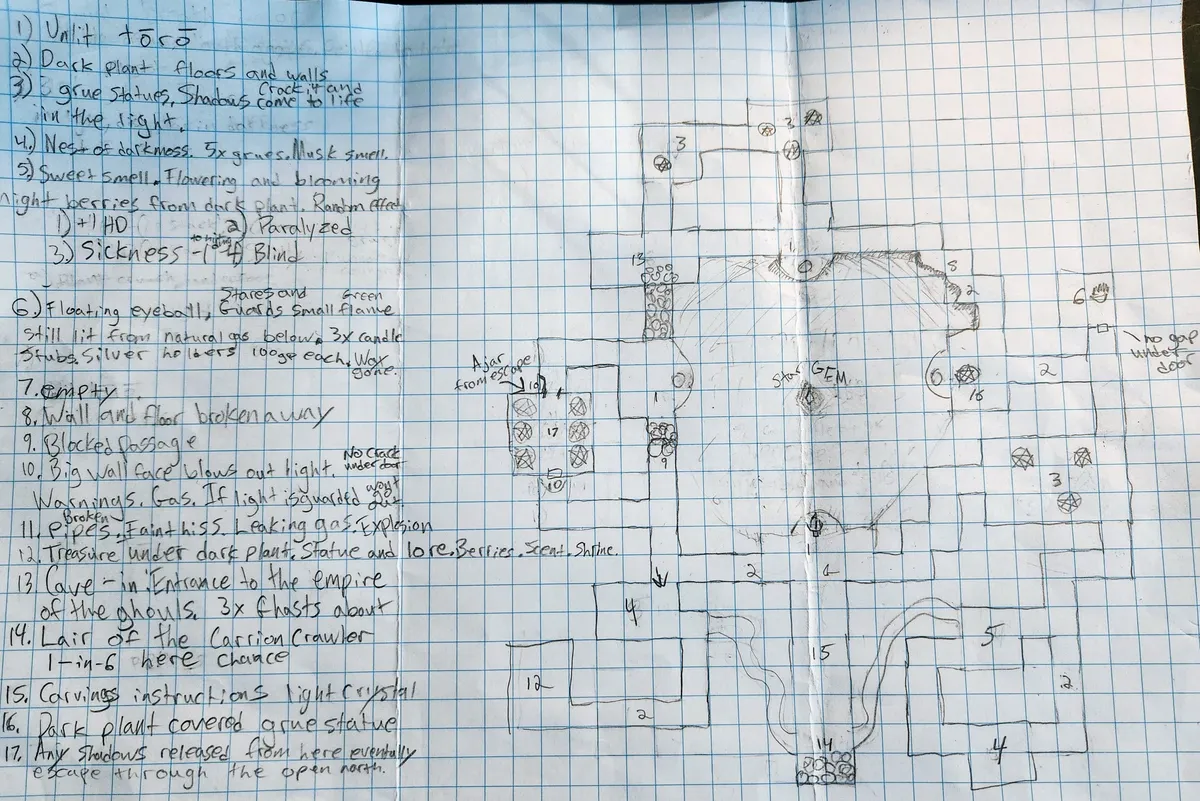 1) Unlit
2) Dark plant floors and walls
3) 3 grue statues, Shadows come to life
Crack it and
in the light.
4.) Nest of darkness. 5x grues. Musk smell.
5) Sweet smell. Flowering and blooming
night berries from dark plant. Random effect
1) +1 HD 2) Paralyzed
3.) Sickness -1 4) Blind
Stares and Green
6) Floating eyeball, Guards small flame
still lit from natural gas below. 3x candle
stubs. Silver holders 100gp each. Wax
gone.
7. empty
8. Wall and floor broken away
9. Blocked Passage
No crack
under door
10. Big wall face blows out light.
Warnings. Gas. If light is guarded won't
Broken
11. Pipes. Faint hiss. Leaking gas. Explosion
12. Treasure under dark plant. Statue and lore. Berries. Scent. Shrine.
13. Cave-in. Entrance to the empire
of the ghouls. 3x Ghasts about
14. Lair of the Carrion Crawler
1-in-6 here chance
15. Carvings instructions light crystal
16. Dark plant covered grue statue
17. Any shadows released from here eventually
escape through the open north.
3
3
1
13
8
2
6
no gap
under
door
Ajar
from escape
10
Star GEM
2
16
1
17
9
10
3
2
4
5
15
12
2
2
14
4